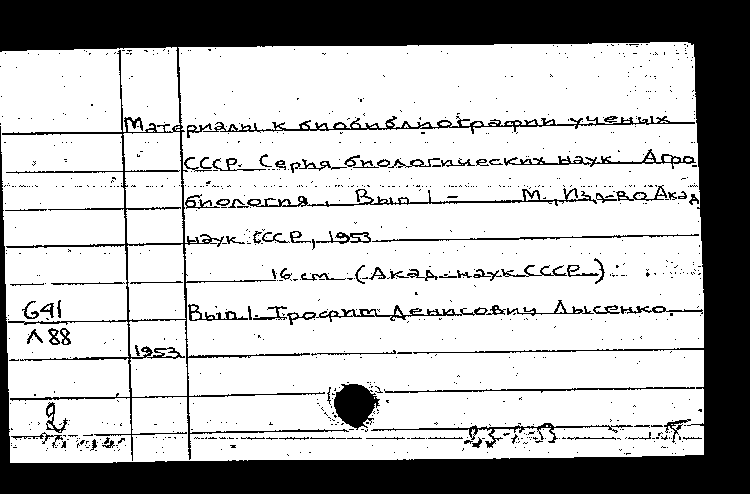 Материалы к биобиблиографии ученых
СССР. Серия биологических наук. Агро
биология. Вып 1 - М., Изд-во Акад
наук СССР, 1953
16 cm (Акад. наук СССР)
641
Л88
Вып 1. Трофим Денисович Лысенко.
1953
2